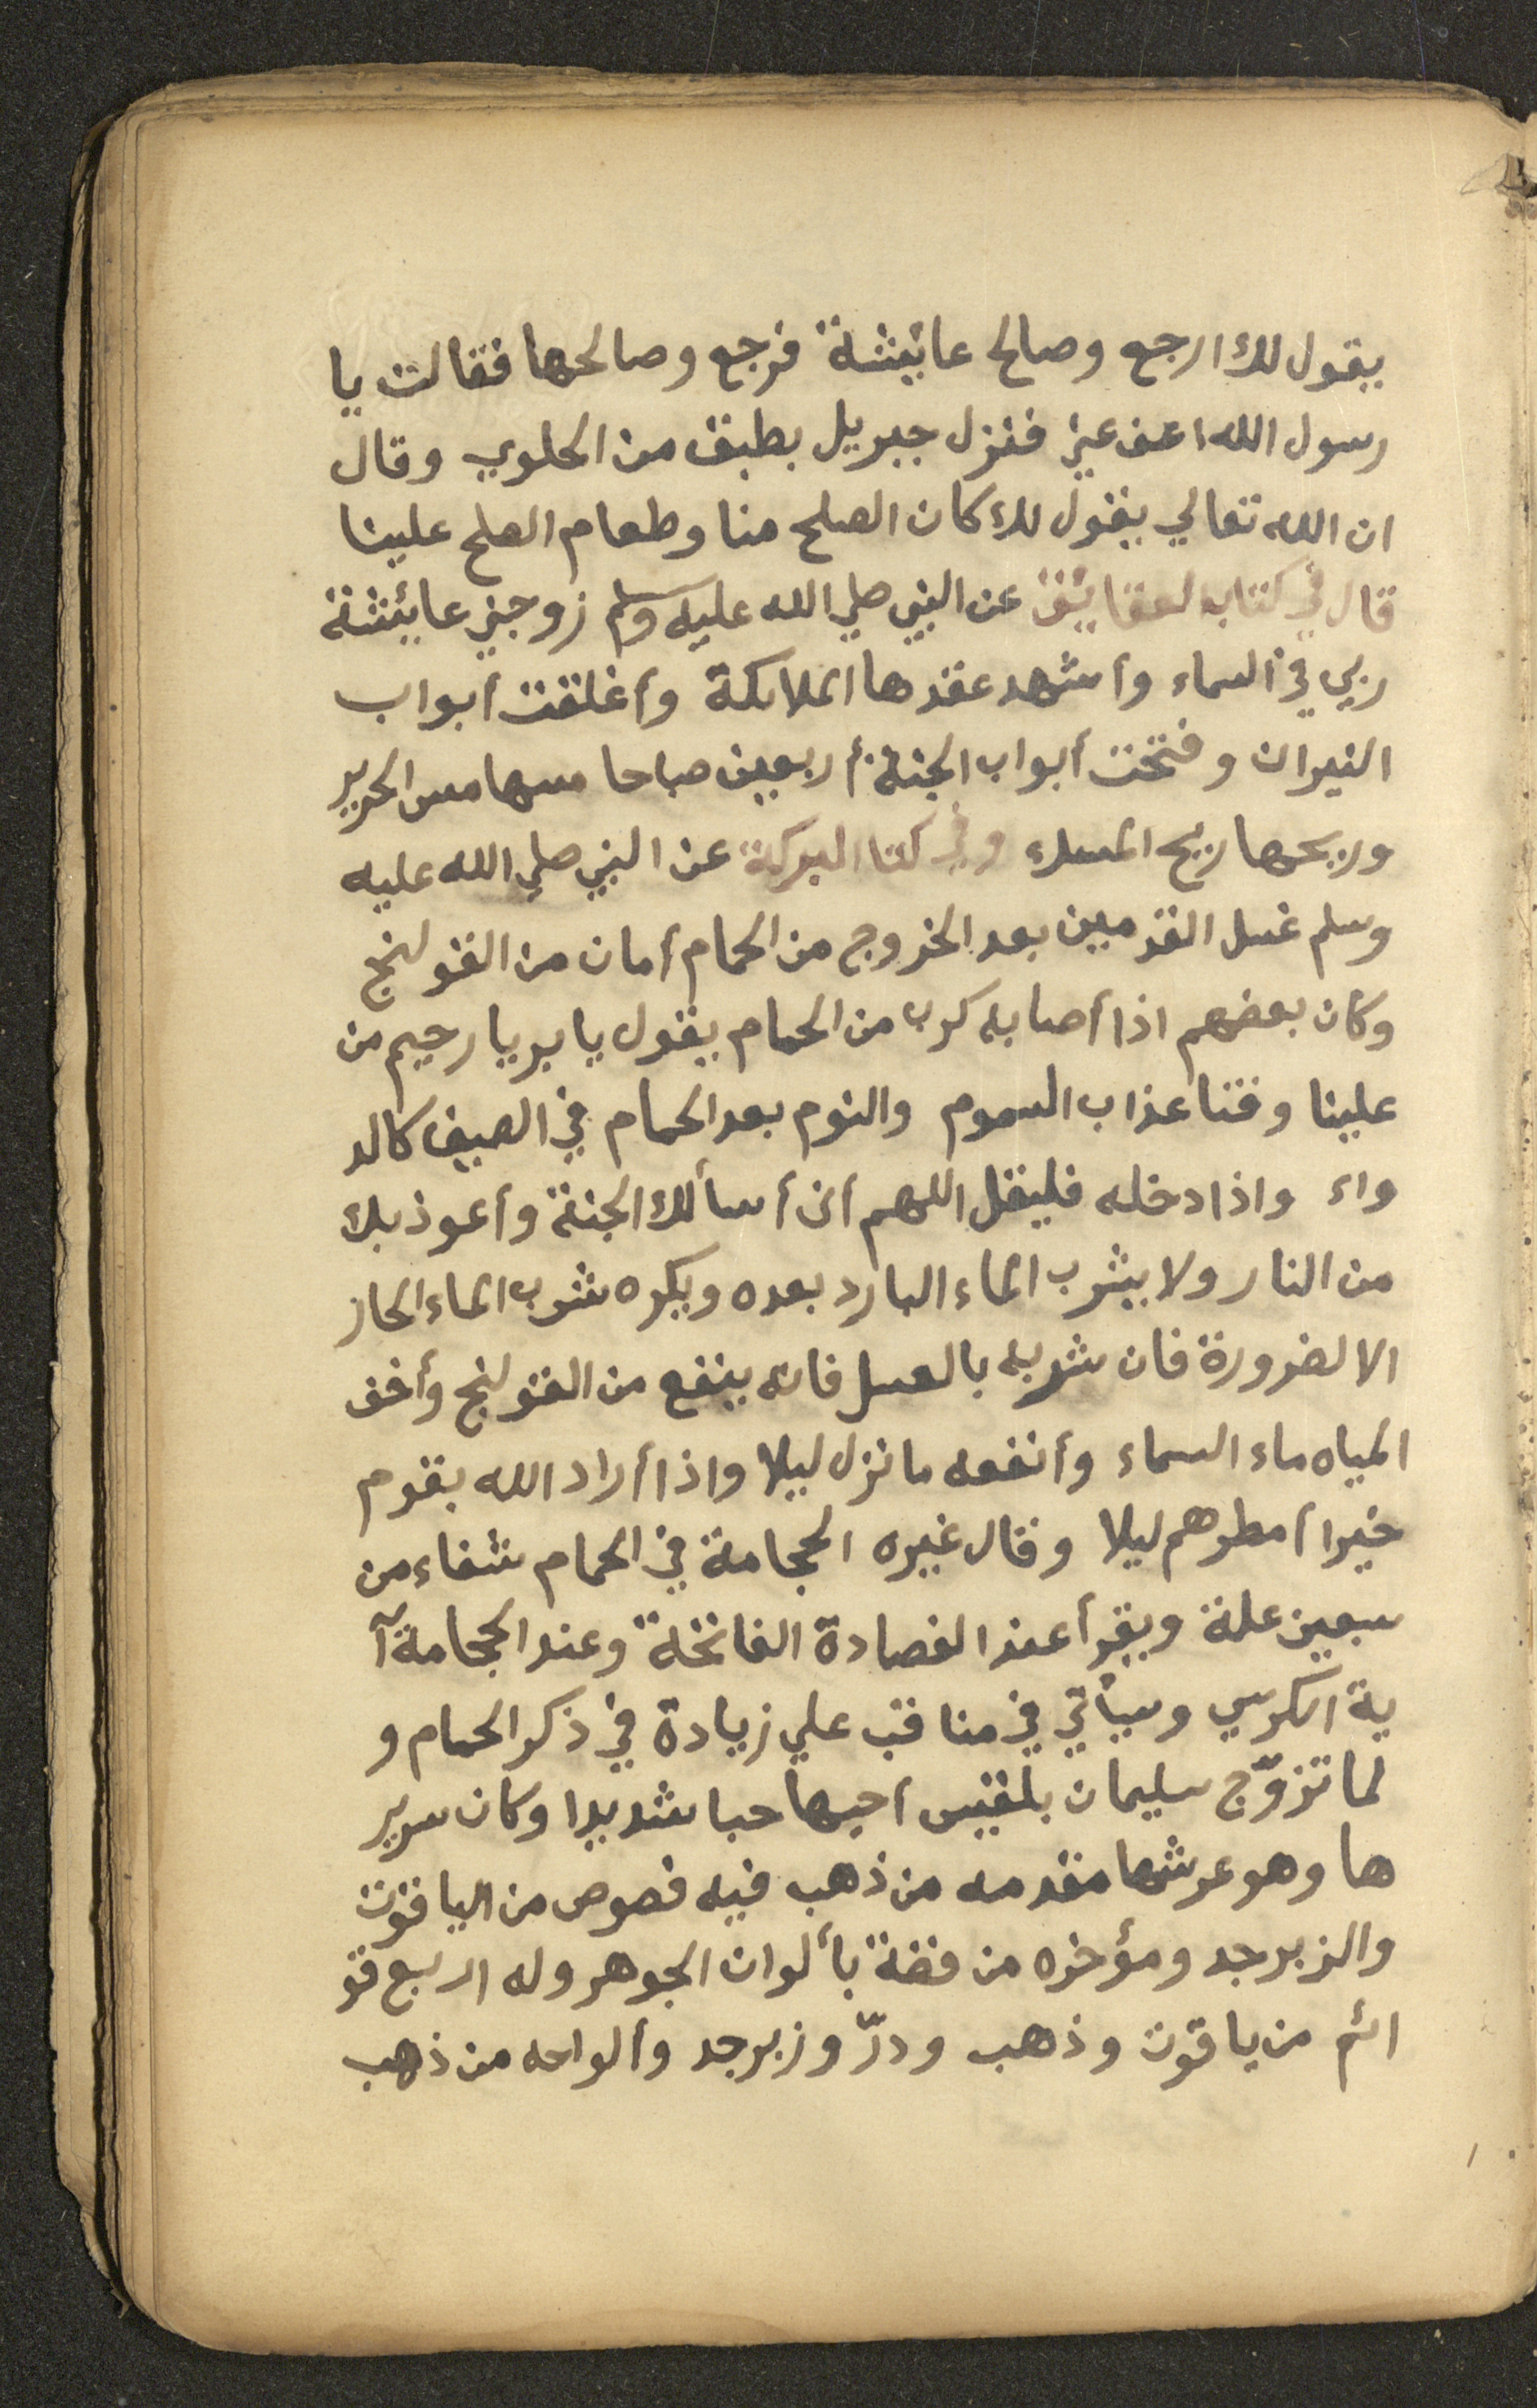 يقول لك ارجع وصالح عائيشة فرجع وصالحها فقالت يا
رسول الله اعف عني فنزل جبريل بطبق من الحلوي وقال
ان الله تعالي يقول لك كان الصلح منا وطعام الصلح علينا
قال في كتاب العقايق عن النبي صلي الله عليه وسلم زوجني عايئشة
ربي في السماء وأشهد عقدها الملائكة وأغلقت أبواب
النيران وفتحت أبواب الجنة أربعين صباحا مسها مس الحرير
وريحها ريح المسك وفي كتا البركة عن النبي صلي الله عليه
وسلم غسل القدمين بعد الخروج من الحمام أمان من القولنج
وكان بعضهم اذا أصابه كرب من الحمام يقول يا بر يا رحيم من
علينا وقنا عذاب السموم والنوم بعد الحمام في الصيف كالد
واء واذا دخله فليقل اللهم أني أسألك الجنة وأعوذ بك
من النار ولا يشرب الماء البارد بعده ويكره شرب الماء الحار
الا لضرورة فان شربه بالعسل فانه ينفع من القولنج وأخف
المياه ماء السماء وأنفعه ما نزل ليلا واذا أراد الله بقوم
خيرا أمطرهم ليلا وقال غيره الحجامة في الحمام شفاء من
سبعين علة ويقرأ عند الفصادة الفاتحة وعند الحجامة آ
ية الكرسي وسيأتي في مناقب علي زيادة في ذكر الحمام و
لما تزوّج سليمان بلقيس أحبها حبا شديدا وكان سرير
ها وهو عرشها مقدمه من ذهب فيه فصوص من الياقوت
والزبرجد ومؤخره من فضة بألوان الجوهر وله اربع قو
ائم من ياقوت وذهب ودرّ وزبرجد وألواحه من ذهب